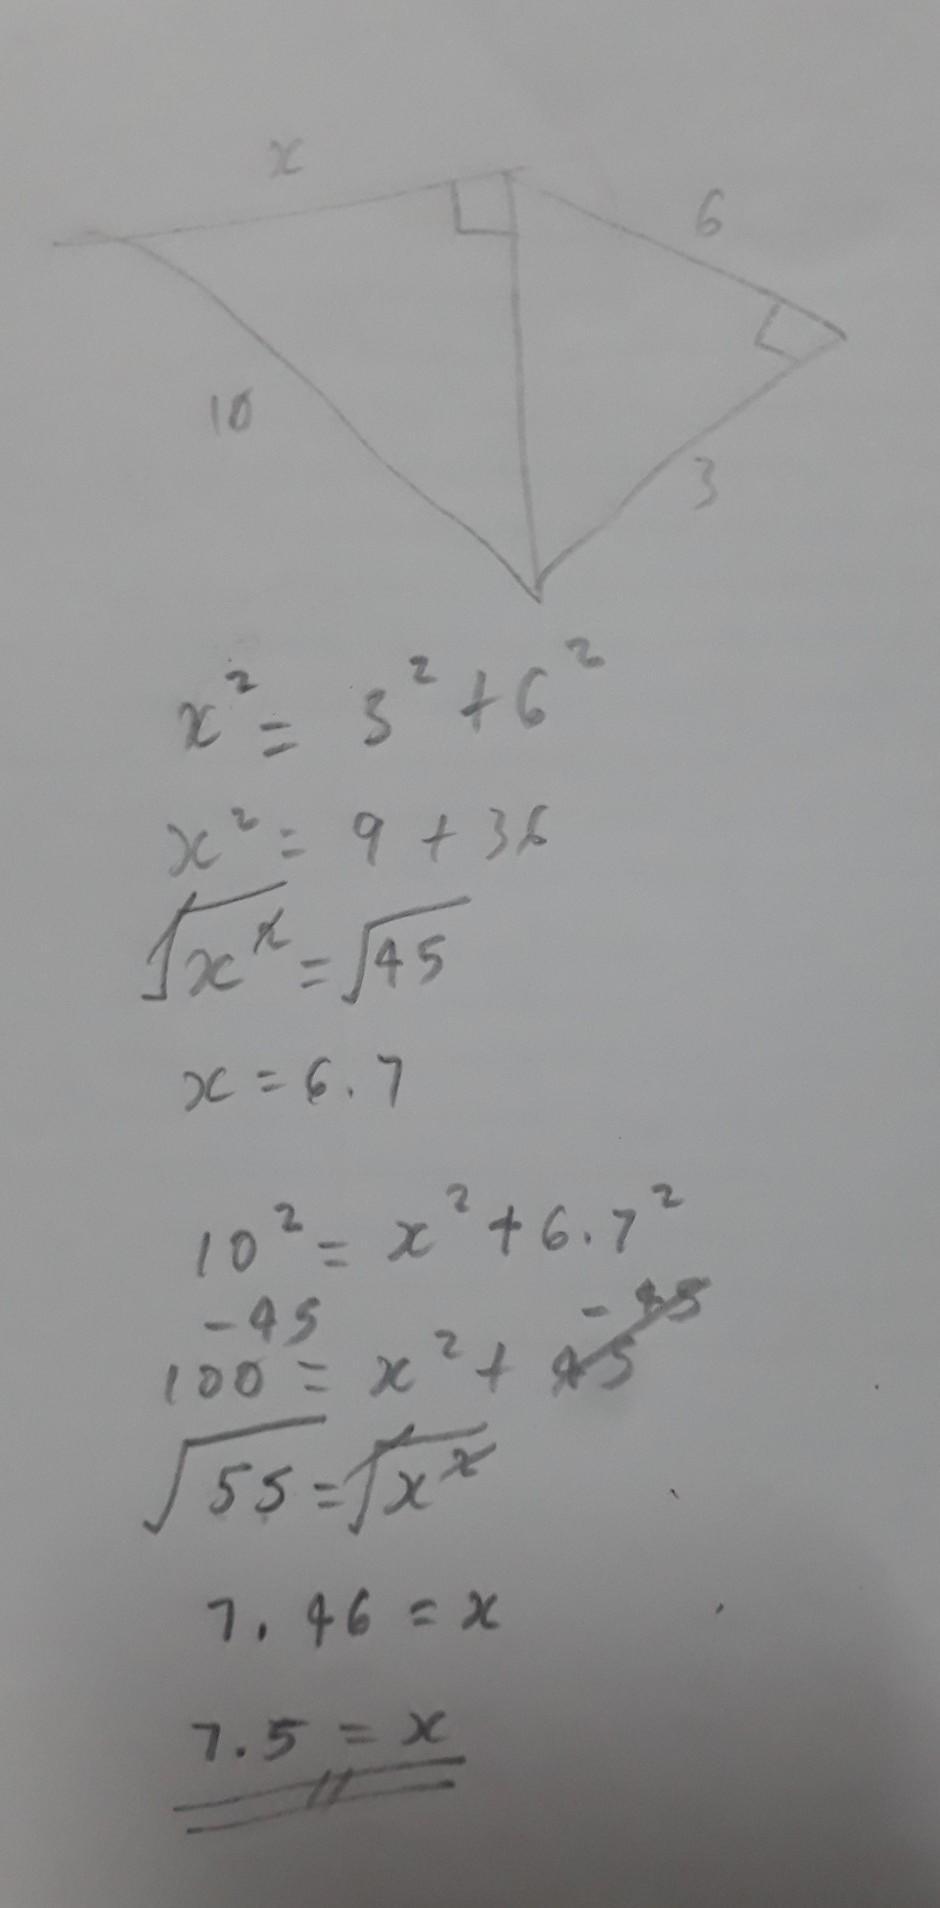 x
6
10
3
x² = 3² + 6²
x² = 9 + 36
√x² = √45
x = 6.7
10² = x² + 6.7²
-45 -45
100 = x² + 45
√55 = √x²
7.46 = x
7.5 = x